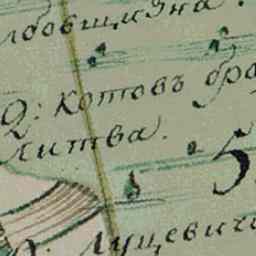 лбовщизна.
Д: котовъ бро
литва.
5
Д: Луцевичи